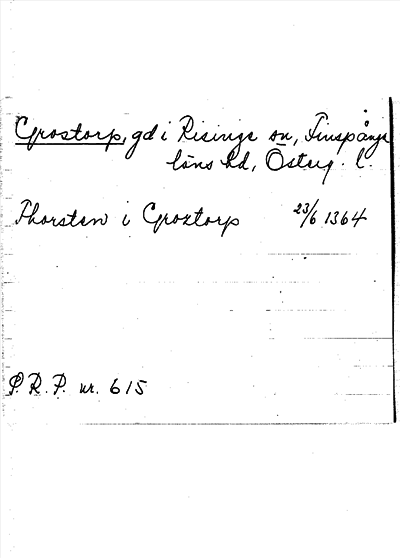 Grostorp, gd i Risinge sn, Finspånga
läns hd, Österg. l.
Thorsten i Groxtorp 23/6 1364
P. R. P. nr. 615